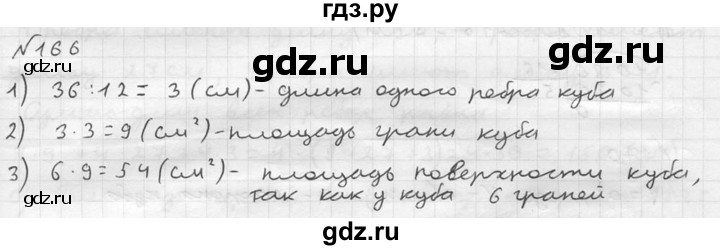 гдз.ру
№166
1) 36:12 = 3 (см) - длина одного ребра куба
2) 3·3=9 (см²) - площадь грани куба
3) 6·9=54 (см²) - площадь поверхности куба,
так как у куба 6 граней
gdz.ru gdz.ru
gdz.ru gdz.ru
gdz.ru gdz.ru